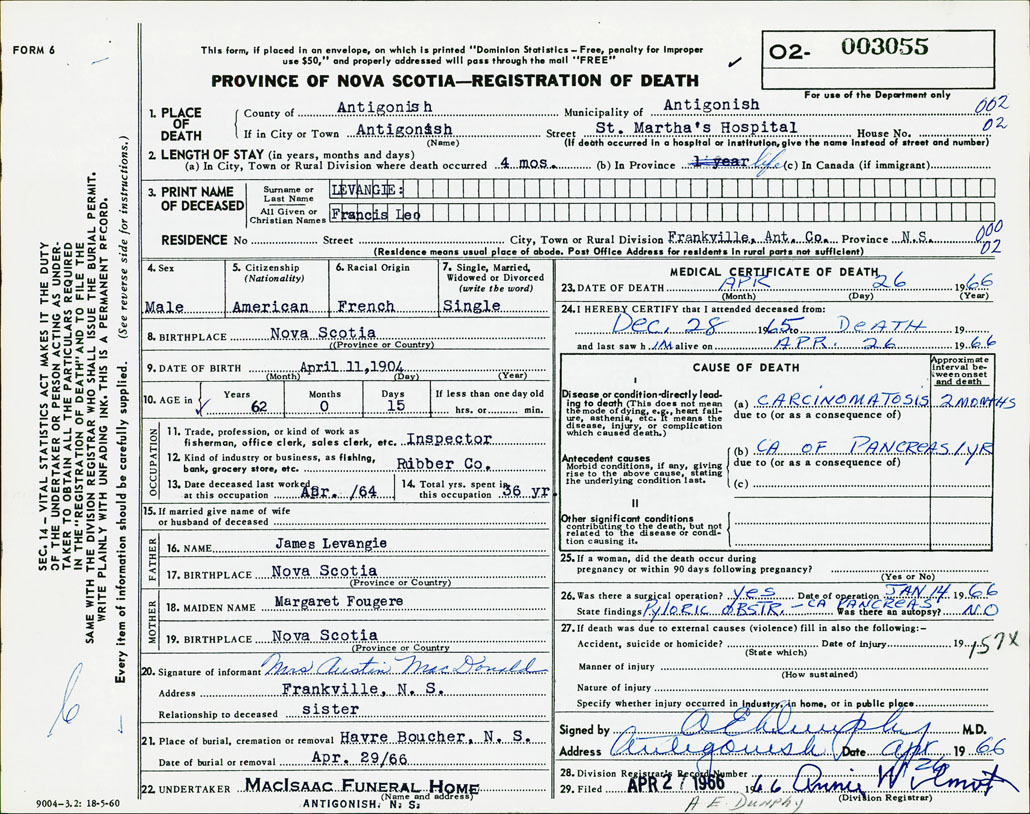 FORM 6
This form, if placed in an envelope, on which is printed "Dominion Statistics – Free, penalty for improper
use $50," and properly addressed will pass through the mail "FREE"
PROVINCE OF NOVA SCOTIA—REGISTRATION OF DEATH
O2- 003055
For use of the Department only
SEC. 14 – VITAL STATISTICS ACT MAKES IT THE DUTY
OF THE UNDERTAKER OR PERSON ACTING AS UNDER-
TAKER TO OBTAIN ALL THE PARTICULARS REQUIRED
IN THE "REGISTRATION OF DEATH" AND TO FILE THE
SAME WITH THE DIVISION REGISTRAR WHO SHALL ISSUE THE BURIAL PERMIT.
WRITE PLAINLY WITH UNFADING INK. THIS IS A PERMANENT RECORD.
Every item of information should be carefully supplied. (See reverse side for instructions.)
1. PLACE OF DEATH
County of Antigonish Municipality of Antigonish 002
If in City or Town Antigonish Street St. Martha's Hospital House No. 02
(Name) (If death occurred in a hospital or institution, give the name instead of street and number)
2. LENGTH OF STAY (in years, months and days)
(a) In City, Town or Rural Division where death occurred 4 mos. (b) In Province 1 year life (c) In Canada (if immigrant)
3. PRINT NAME OF DECEASED
Surname or Last Name LEVANGIE:
All Given or Christian Names Francis Leo
RESIDENCE No Street City, Town or Rural Division Frankville, Ant. Co. Province N.S. 000 02
(Residence means usual place of abode. Post Office Address for residents in rural parts not sufficient)
4. Sex
Male
5. Citizenship (Nationality)
American
6. Racial Origin
French
7. Single, Married, Widowed or Divorced (write the word)
Single
8. BIRTHPLACE Nova Scotia
((Province or Country)
9. DATE OF BIRTH April 11,1904
(Month) (Day) (Year)
10. AGE in Years Months Days If less than one day old
62 0 15 hrs. or min.
OCCUPATION
11. Trade, profession, or kind of work as
fisherman, office clerk, sales clerk, etc. Inspector
12. Kind of industry or business, as fishing,
bank, grocery store, etc. Ribber Co.
13. Date deceased last worked
at this occupation Apr. /64
14. Total yrs. spent in
this occupation 36 yr.
15. If married give name of wife
or husband of deceased
FATHER
16. NAME James Levangie
17. BIRTHPLACE Nova Scotia
(Province or Country)
MOTHER
18. MAIDEN NAME Margaret Fougere
19. BIRTHPLACE Nova Scotia
(Province or Country)
20. Signature of informant Mrs Austin MacDonald
Address Frankville, N. S.
Relationship to deceased sister
21. Place of burial, cremation or removal Havre Boucher, N. S.
Date of burial or removal Apr. 29/66
22. UNDERTAKER MacIsaac Funeral Home
(Name and address)
ANTIGONISH, N. S.
9004-3.2: 18-5-60
6
MEDICAL CERTIFICATE OF DEATH
23. DATE OF DEATH APR 26 1966
(Month) (Day) (Year)
24. I HEREBY CERTIFY that I attended deceased from:
Dec. 28 1965 to DEATH 19
and last saw h im alive on APR. 26 1966
CAUSE OF DEATH
Approximate interval between onset and death
I
Disease or condition directly lead-
ing to death (This does not mean
the mode of dying, e.g., heart fail-
ure, asthenia, etc. It means the
disease, injury, or complication
which caused death.)
(a) CARCINOMATOSIS 2 MONTHS
due to (or as a consequence of)
Antecedent causes
Morbid conditions, if any, giving
rise to the above cause, stating
the underlying condition last.
(b) CA OF PANCREAS 1 YR
due to (or as a consequence of)
(c)
II
Other significant conditions
contributing to the death, but not
related to the disease or condi-
tion causing it.
25. If a woman, did the death occur during
pregnancy or within 90 days following pregnancy?
(Yes or No)
26. Was there a surgical operation? yes Date of operation JAN 14 1966
State findings Pyloric OBSTR. – CA PANCREAS Was there an autopsy? NO
27. If death was due to external causes (violence) fill in also the following:–
Accident, suicide or homicide? Date of injury 19 157X
(State which)
Manner of injury
(How sustained)
Nature of injury
Specify whether injury occurred in industry, in home, or in public place
Signed by A E Dunphy M.D.
Address Antigonish Date apr 1966
26
28. Division Registrar's Record Number
29. Filed APR 27 1966 1966 Annie Wilmot
(Division Registrar)
A E DUNPHY